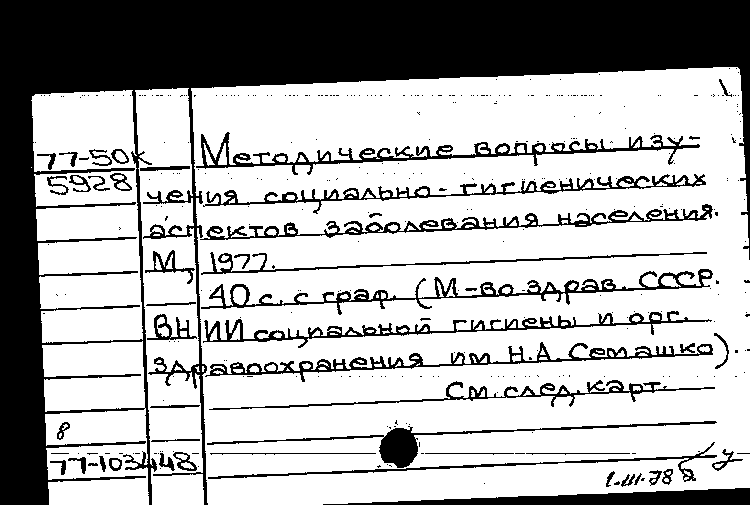 77-50к Методические вопросы изу-
5928 чения социально-гигиенических
аспектов заболевания населения.
М., 1977.
40 с. с граф. (М-во здрав. СССР.
ВНИИ социальной гигиены и орг.
здравоохранения им. Н.А. Семашко).
См. след. карт.
8
77-103448
1-III-78 г.